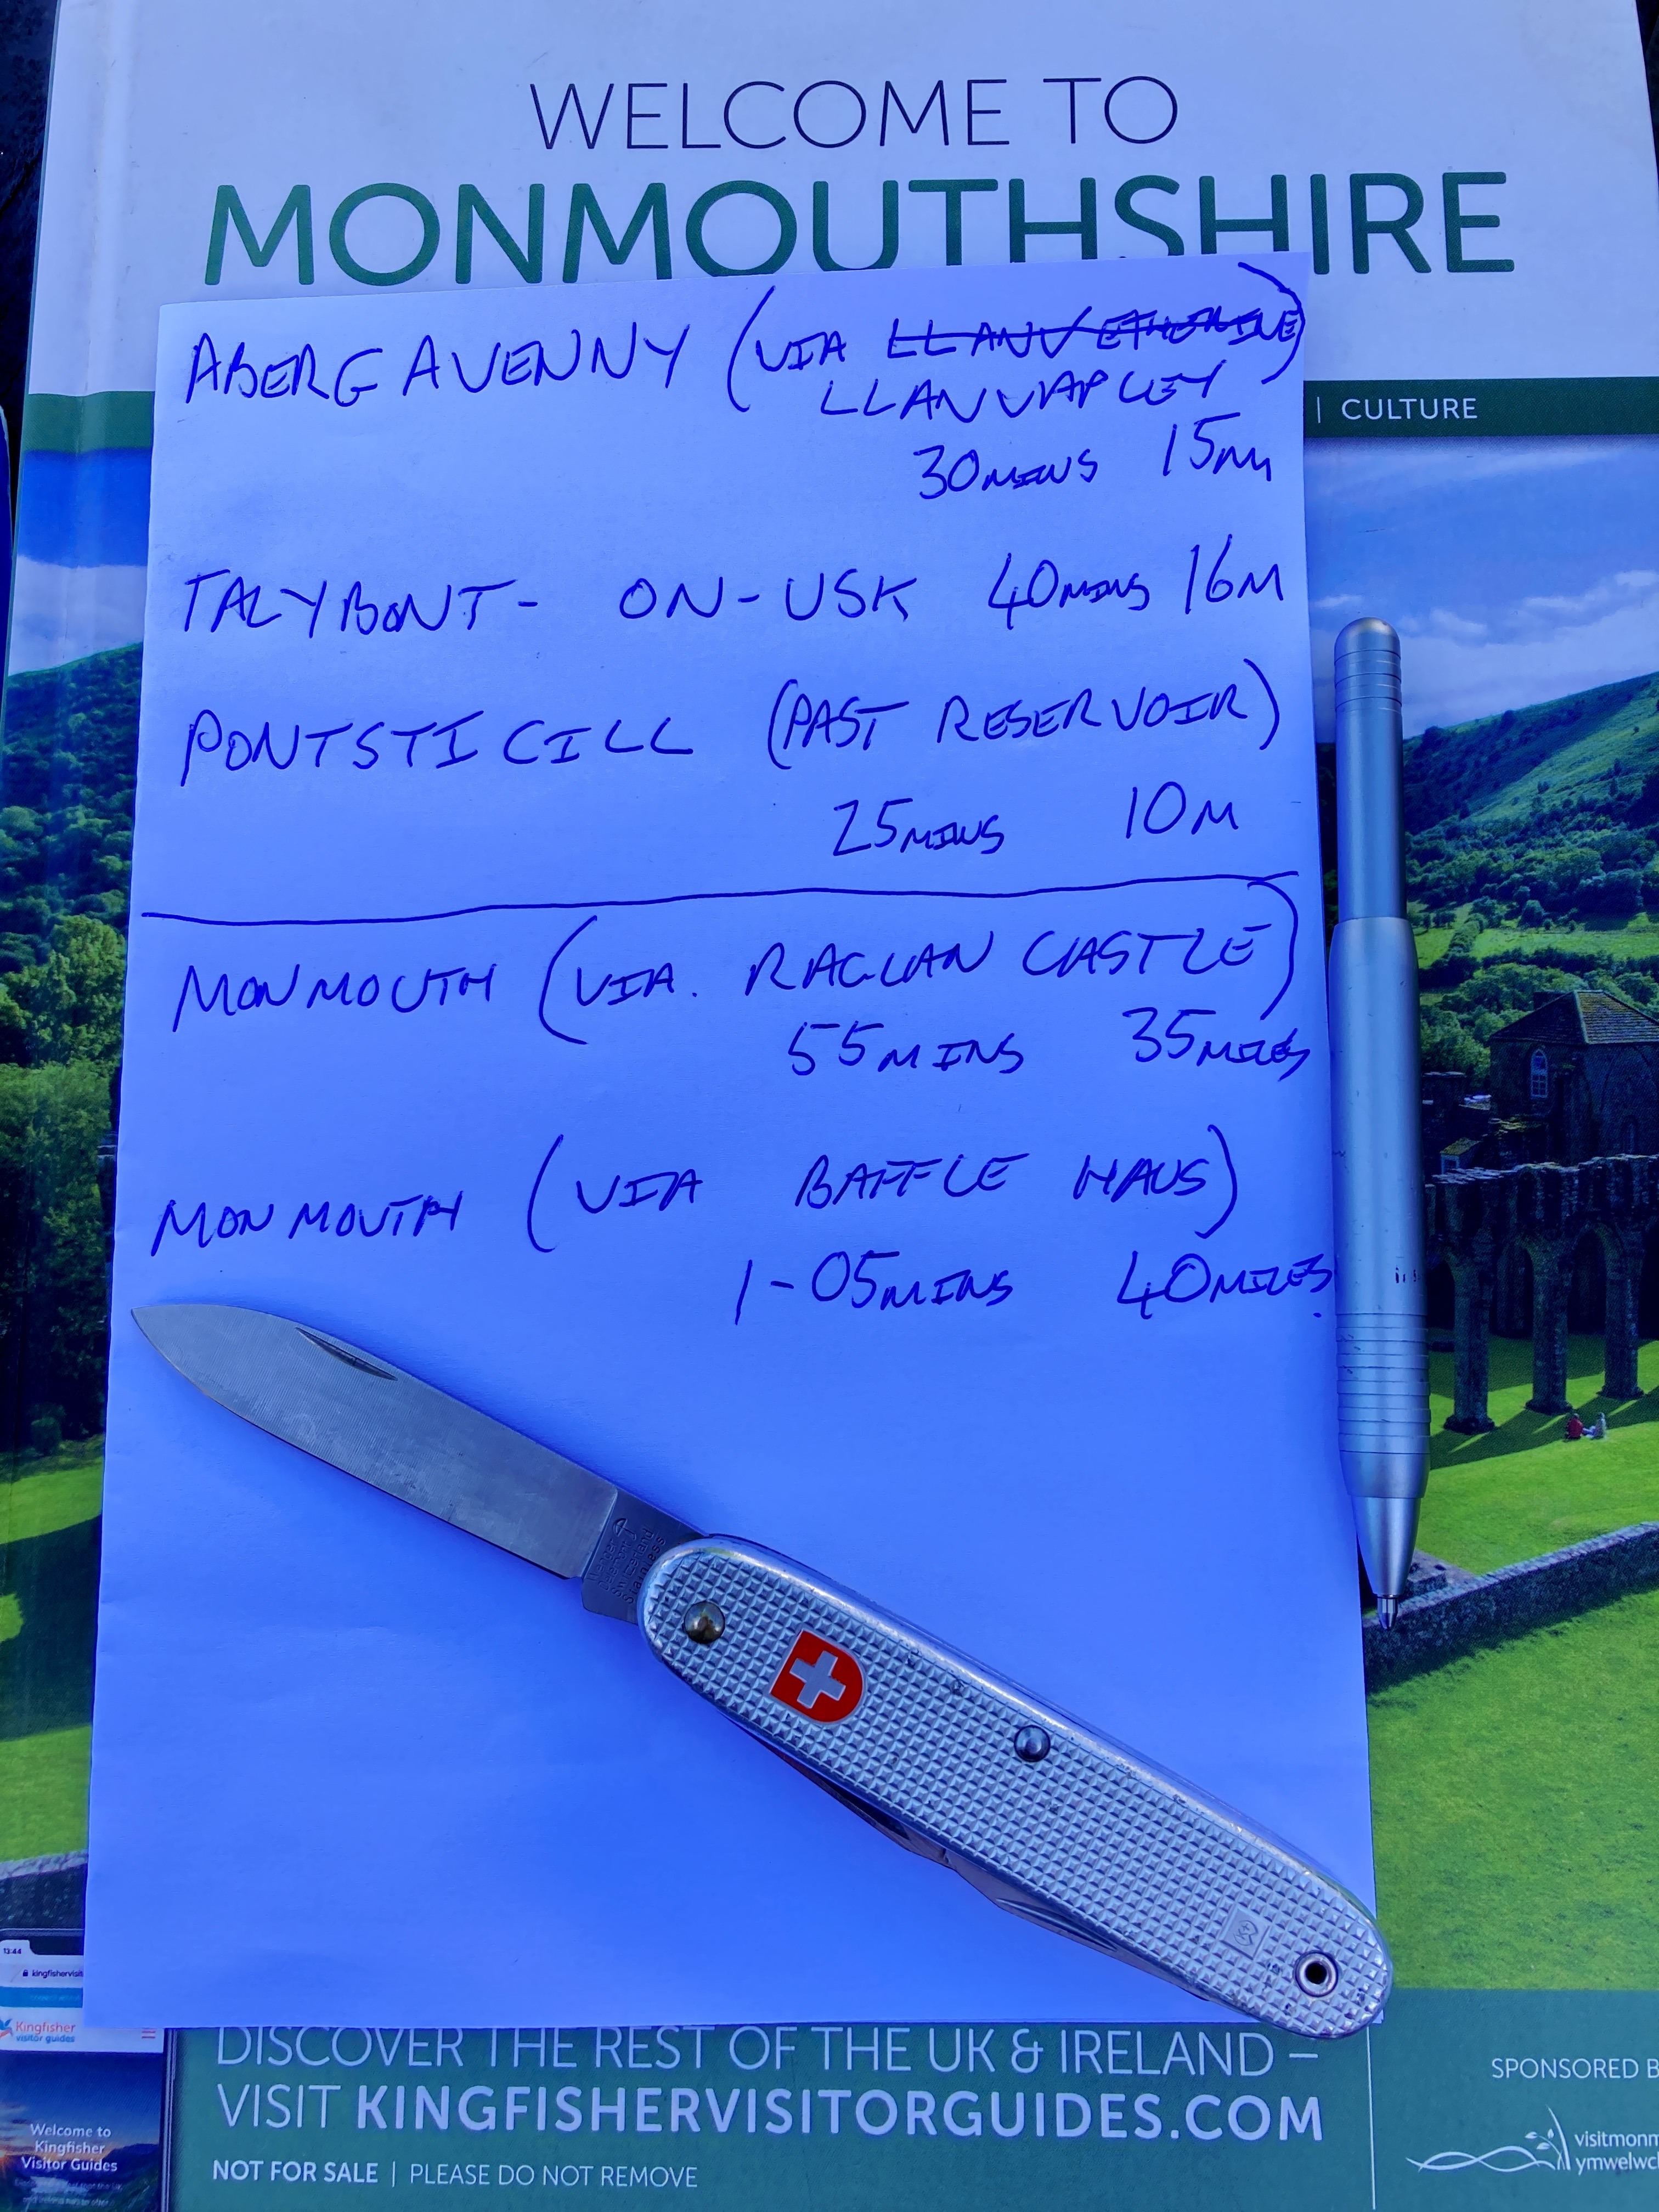 WELCOME TO
MONMOUTHSHIRE
| CULTURE
ABERGAVENNY (VIA LLANVETHERINE)
LLANVAPLEY
30MINS 15M
TALYBONT- ON-USK 40MINS 16M
PONTSTICILL (PAST RESERVOIR)
25MINS 10M
MONMOUTH (VIA. RAGLAN CASTLE)
55MINS 35MILES
MONMOUTH (VIA BAFFLE HAUS)
1-05MINS 40MILES
Switzerland
Stainless
13:44
kingfishervisit
Kingfisher
visitor guides
Welcome to
Kingfisher
Visitor Guides
DISCOVER THE REST OF THE UK & IRELAND –
VISIT KINGFISHERVISITORGUIDES.COM
NOT FOR SALE | PLEASE DO NOT REMOVE
SPONSORED B
visitmonm
ymwelwc